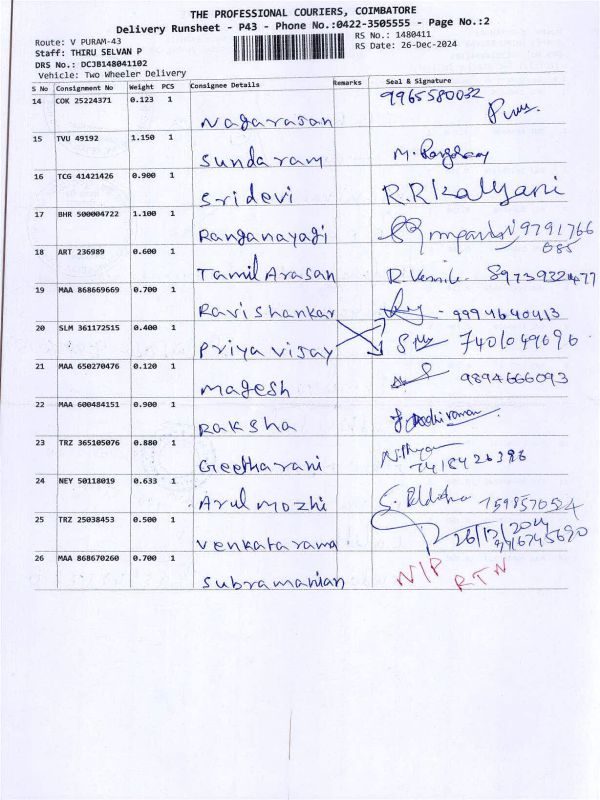 THE PROFESSIONAL COURIERS, COIMBATORE
Delivery Runsheet - P43 - Phone No.:0422-3505555 - Page No.:2
Route: V PURAM-43
RS No.: 1480411
Staff: THIRU SELVAN P
RS Date: 26-Dec-2024
DRS No.: DCJB148041102
Vehicle: Two Wheeler Delivery
S No Consignment No Weight PCS Consignee Details Remarks Seal & Signature
14 COK 25224371 0.123 1 Nagarasan 9965580032
15 TVU 49192 1.150 1 Sundaram
16 TCG 41421426 0.900 1 Sridevi R.R Kalyani
17 BHR 500004722 1.100 1 Ranganayagi 9791766
085
18 ART 236989 0.600 1 Tamil Arasan
19 MAA 868669669 0.700 1 Ravishankar
20 SLM 361172515 0.400 1 Priya vijay
21 MAA 650270476 0.120 1 Magesh 9894666093
22 MAA 600484151 0.900 1 Raksha
23 TRZ 365105076 0.880 1 Geetharani
24 NEY 50118019 0.633 1 Arul mozhi
25 TRZ 25038453 0.500 1 Venkatarama
26 MAA 868670260 0.700 1 Subramanian N/P RTN